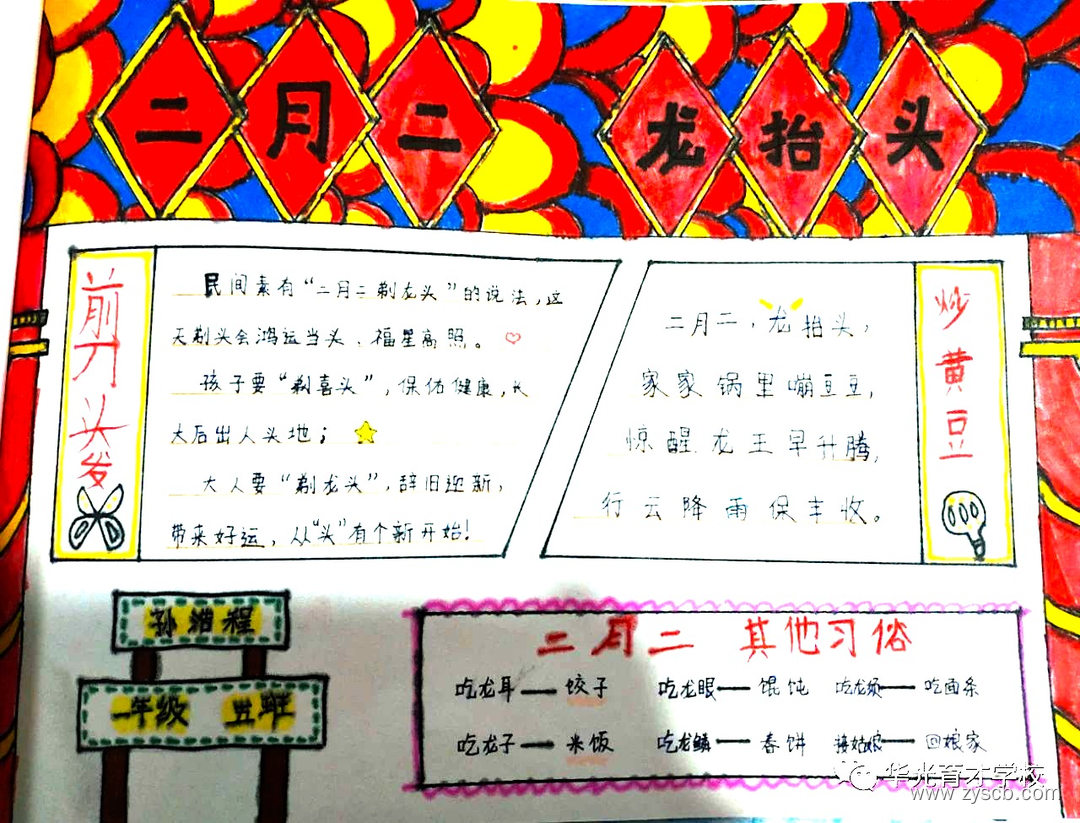 二月二 龙抬头
剪刀头发
民间素有“二月二剃龙头”的说法，这
天剃头会鸿运当头、福星高照。
孩子要“剃喜头”，保佑健康，长
大后出人头地；
大人要“剃龙头”，辞旧迎新，
带来好运，从“头”有个新开始！
二月二，龙抬头，
家家锅里嘣豆豆，
惊醒龙王早升腾，
行云降雨保丰收。
炒黄豆
一年级 五班
二月二 其他习俗
吃龙耳——饺子 吃龙眼——馄饨 吃龙须——吃面条
吃龙子——米饭 吃龙鳞——春饼 接姑娘——回娘家
华光育才学校
www.zyscb.com